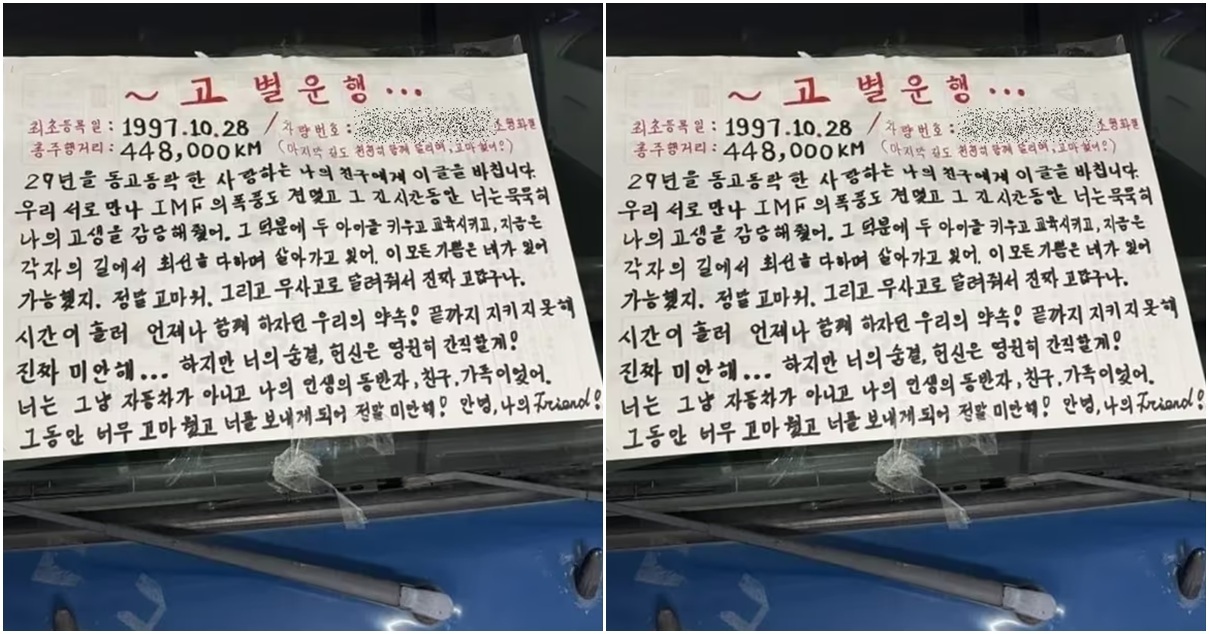 ~ 고별운행...
최초등록일: 1997.10.28 / 차량번호: 소형화물
총주행거리: 448,000KM (마지막 길도 함께 고마웠어!)
29년을 동고동락 한 사랑하는 나의 친구에게 이 글을 바칩니다.
우리 서로 만나 IMF의 폭풍도 견뎠고 그 긴 시간동안 너는 묵묵히
나의 고생을 감당해줬어. 그 덕분에 두 아이를 키우고 교육시키고, 지금은
각자의 길에서 최선을 다하며 살아가고 있어. 이 모든 기쁨은 네가 있어
가능했지. 정말 고마워. 그리고 무사고로 달려줘서 진짜 고맙구나.
시간이 흘러 언제나 함께 하자던 우리의 약속! 끝까지 지키지 못해
진짜 미안해... 하지만 너의 숨결, 헌신은 영원히 간직할게!
너는 그냥 자동차가 아니고 나의 인생의 동반자, 친구, 가족이었어.
그동안 너무 고마웠고 너를 보내게 되어 정말 미안해! 안녕, 나의 Friend!
~ 고별운행...
최초등록일: 1997.10.28 / 차량번호: 소형화물
총주행거리: 448,000KM (마지막 길도 함께 고마웠어!)
29년을 동고동락 한 사랑하는 나의 친구에게 이 글을 바칩니다.
우리 서로 만나 IMF의 폭풍도 견뎠고 그 긴 시간동안 너는 묵묵히
나의 고생을 감당해줬어. 그 덕분에 두 아이를 키우고 교육시키고, 지금은
각자의 길에서 최선을 다하며 살아가고 있어. 이 모든 기쁨은 네가 있어
가능했지. 정말 고마워. 그리고 무사고로 달려줘서 진짜 고맙구나.
시간이 흘러 언제나 함께 하자던 우리의 약속! 끝까지 지키지 못해
진짜 미안해... 하지만 너의 숨결, 헌신은 영원히 간직할게!
너는 그냥 자동차가 아니고 나의 인생의 동반자, 친구, 가족이었어.
그동안 너무 고마웠고 너를 보내게 되어 정말 미안해! 안녕, 나의 Friend!